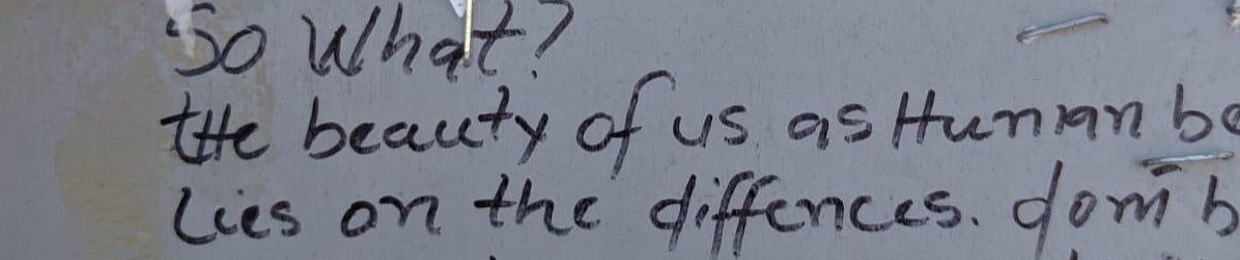 So What?
tHe beauty of us as Human be
Lies on the diffences. don't b